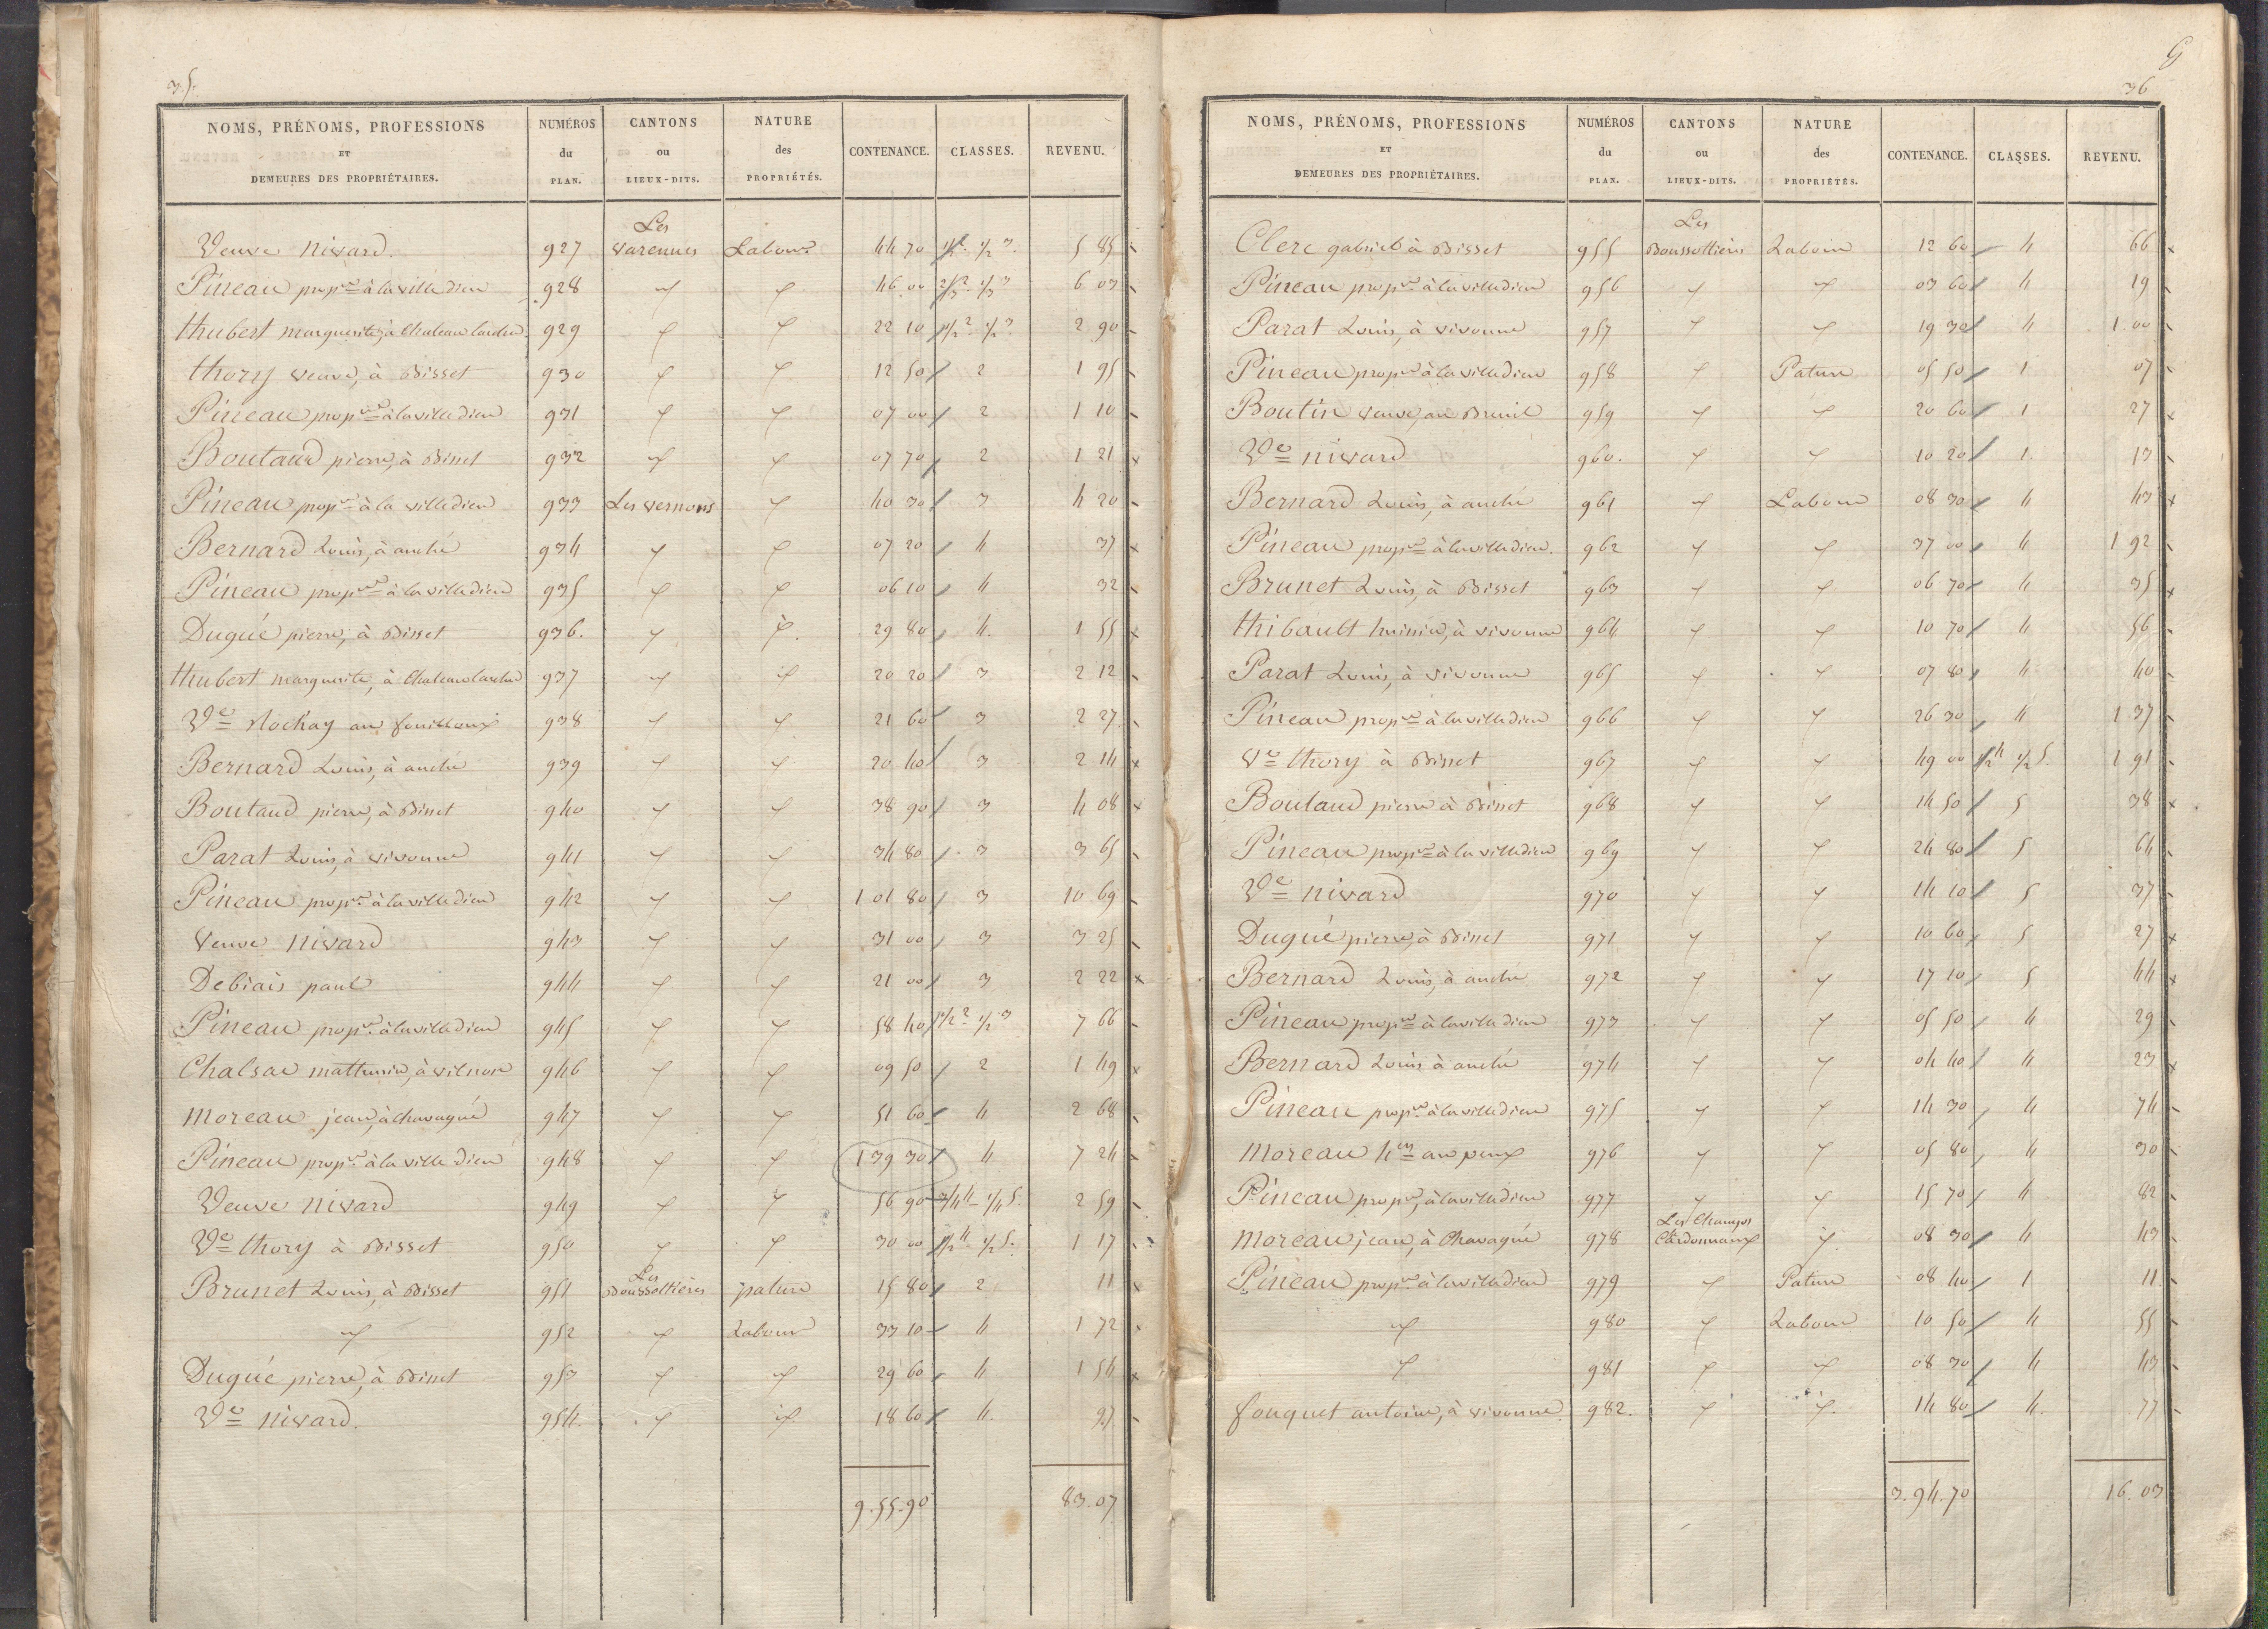 35.
NOMS, PRÉNOMS, PROFESSIONS ET DEMEURES DES PROPRIÉTAIRES. NUMÉROS du PLAN. CANTONS ou LIEUX-DITS. NATURE des PROPRIÉTÉS. CONTENANCE. CLASSES. REVENU.
Veuve nivard. 927 Les varennes Labour 44 70 1/2 2 1/2 3 5 85
Pineau propre à la ville dieu 928 〃 〃 46 00 2/3 2 1/3 3 6 03
thubert marguerite, à Chateau larcher 929 〃 〃 22 10 1/2 2 1/2 3 2 90
thory veuve, à Bisset 930 〃 〃 12 50 2 1 95
Pineau propre à la ville dieu 931 〃 〃 07 00 2 1 10
Boutaud pierre, à Bisset 932 〃 〃 07 70 2 1 21
Pineau propre à la ville dieu 933 Les vernons 〃 40 30 3 4 20
Bernard Louis, à anché 934 〃 〃 07 20 4 37
Pineau propre à la ville dieu 935 〃 〃 06 10 4 32
Dugué pierre, à Bisset 936. 〃 〃 29 80 4. 1 55
thubert marguerite, à Chateau larcher 937 〃 〃 20 20 3 2 12
Ve Rochay au fouilloux 938 〃 〃 21 60 3 2 27
Bernard Louis, à anché 939 〃 〃 20 40 3 2 14
Boutaud pierre, à Bisset 940 〃 〃 38 90 3 4 08
Parat Louis, à vivonne 941 〃 〃 34 80 3 3 65
Pineau propre à la ville dieu 942 〃 〃 1 01 80 3 10 69
Veuve nivard 943 〃 〃 31 00 3 3 25
Debiais paul 944 〃 〃 21 00 3 2 22
Pineau propre à la ville dieu 945 〃 〃 58 40 1/2 2 1/2 3 7 66
Chalsac mathurin, à 946 〃 〃 09 50 2 1 49
moreau jean, à chavagné 947 〃 〃 51 60 4 2 68
Pineau propre à la ville dieu 948 〃 〃 1 39 30 4 7 24
Veuve nivard 949 〃 〃 56 90 3/4 4 1/4 5. 2 59
Ve thory à Bisset 950 〃 〃 30 00 1/2 4 1/2 5. 1 17
Brunet Louis, à Bisset 951 Les Boussottières pature 15 80 2 11
〃 952 〃 Labour 33 10 4 1 72
Dugué pierre, à Bisset 953 〃 〃 29 60 4 1 54
Ve nivard. 954. 〃 〃 18 60 4. 97
9.55.90 83.07
G
36
NOMS, PRÉNOMS, PROFESSIONS ET DEMEURES DES PROPRIÉTAIRES. NUMÉROS du PLAN. CANTONS ou LIEUX-DITS. NATURE des PROPRIÉTÉS. CONTENANCE. CLASSES. REVENU.
Clerc gabriel à Bisset 955 Les Boussottières Labour 12 60 4 66
Pineau propre à la ville dieu 956 〃 〃 03 60 4 19
Parat Louis, à vivonne 957 〃 〃 19 30 4 1.00
Pineau propre à la ville dieu 958 〃 Pature 05 50 1 07
Boutin veuve, au Breuil 959 〃 〃 20 60 1 27
Ve nivard 960. 〃 〃 10 20 1. 13
Bernard Louis, à anché 961 〃 Labour 08 30 4 43
Pineau propre à la ville dieu. 962 〃 〃 37 00 4 1 92
Brunet Louis, à Bisset 963 〃 〃 06 70 4 35
thibault huissier, à vivonne 964 〃 〃 10 70 4 56
Parat Louis, à vivonne 965 〃 〃 07 80 4 40
Pineau propre à la ville dieu 966 〃 〃 26 30 4 1 37
Ve thory à Bisset 967 〃 〃 49 00 1/2 4 1/2 5. 1 91
Boutaud pierre à Bisset 968 〃 〃 14 50 5 38
Pineau propre à la ville dieu 969 〃 〃 24 80 5 64
Ve nivard 970 〃 〃 14 10 5 37
Dugué pierre, à Bisset 971 〃 〃 10 60 5 27
Bernard Louis, à anché 972 〃 〃 17 10 5 44
Pineau propre à la ville dieu 973 〃 〃 05 50 4 29
Bernard Louis à anché 974 〃 〃 04 40 4 23
Pineau propre à la ville dieu 975 〃 〃 14 30 4 74
moreau au peux 976 〃 〃 05 80 4 30
Pineau propre, à la ville dieu 977 〃 〃 15 70 4 82
moreau jean, à Chavagné 978 Les Champs Cardonnaux 〃 08 30 4 43
Pineau propre à la ville dieu 979 〃 Pature 08 40 1 11
〃 980 〃 Labour 10 50 4 55
〃 981 〃 〃 08 30 4 43
fouquet antoine, à vivonne 982. 〃 〃 14 80 4. 77
3.94.70 16.03